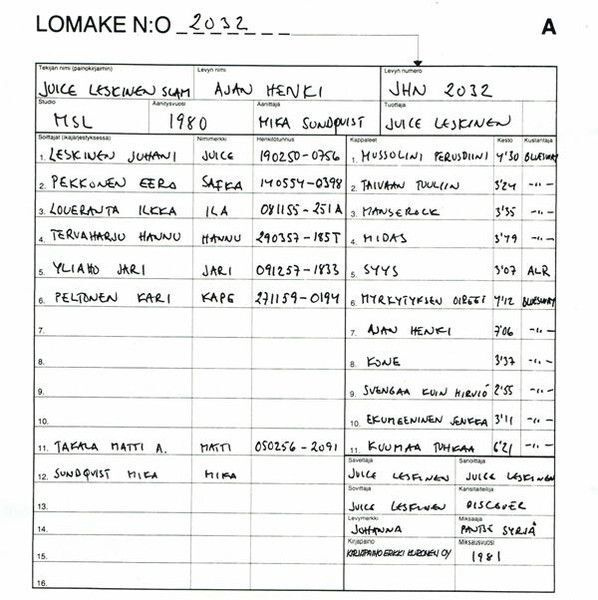 LOMAKE N:O 2032 A
Tekijän nimi (painokirjaimin) Levyn nimi Levyn numero
JUICE LESKINEN SLAM AJAN HENKI JHN 2032
Studio Äänitysvuosi Äänittäjä Tuottaja
MSL 1980 MIKA SUNDQVIST JUICE LESKINEN
Soittajat (ikäjärjestyksessä) Nimimerkki Henkilötunnus Kappaleet Kesto Kustantaja
1. LESKINEN JUHANI JUICE 190250-0756 1. MUSSOLINI PERUSDIINI 4'30 BLUESWAY
2. PEKKONEN EERO SAFKA 140554-0398 2. TAIVAAN TUULIIN 3'24 -"-
3. LOUERANTA ILKKA ILA 081155-251A 3. MANSEROCK 3'35 -"-
4. TERVAHARJU HANNU HANNU 290357-185T 4. MIDAS 3'49 -"-
5. YLIAHO JARI JARI 091257-1833 5. SYYS 3'07 ALR
6. PELTONEN KARI KAPE 271159-0194 6. MYRKYTYKSEN OIREET 4'12 BLUESWAY
7. 7. AJAN HENKI 7'06 -"-
8. 8. KONE 3'37 -"-
9. 9. SVENGAA KUIN HIRVIÖ 2'55 -"-
10. 10. EKUMEENINEN JENKKA 3'11 -"-
11. TAKALA MATTI A. MATTI 050256-2091 11. KUUMAA TUHKAA 6'21 -"-
12. SUNDQVIST MIKA MIKA
Säveltäjä Sanoittaja
JUICE LESKINEN JUICE LESKINEN
13.
Sovittaja Kansitaiteilija
JUICE LESKINEN DISCOVER
14.
Levymerkki Miksaaja
JOHANNA PANTSE SYRJÄ
15.
Kirjapaino Miksausvuosi
KIRJAPAINO ERKKI KURONEN OY 1981
16.